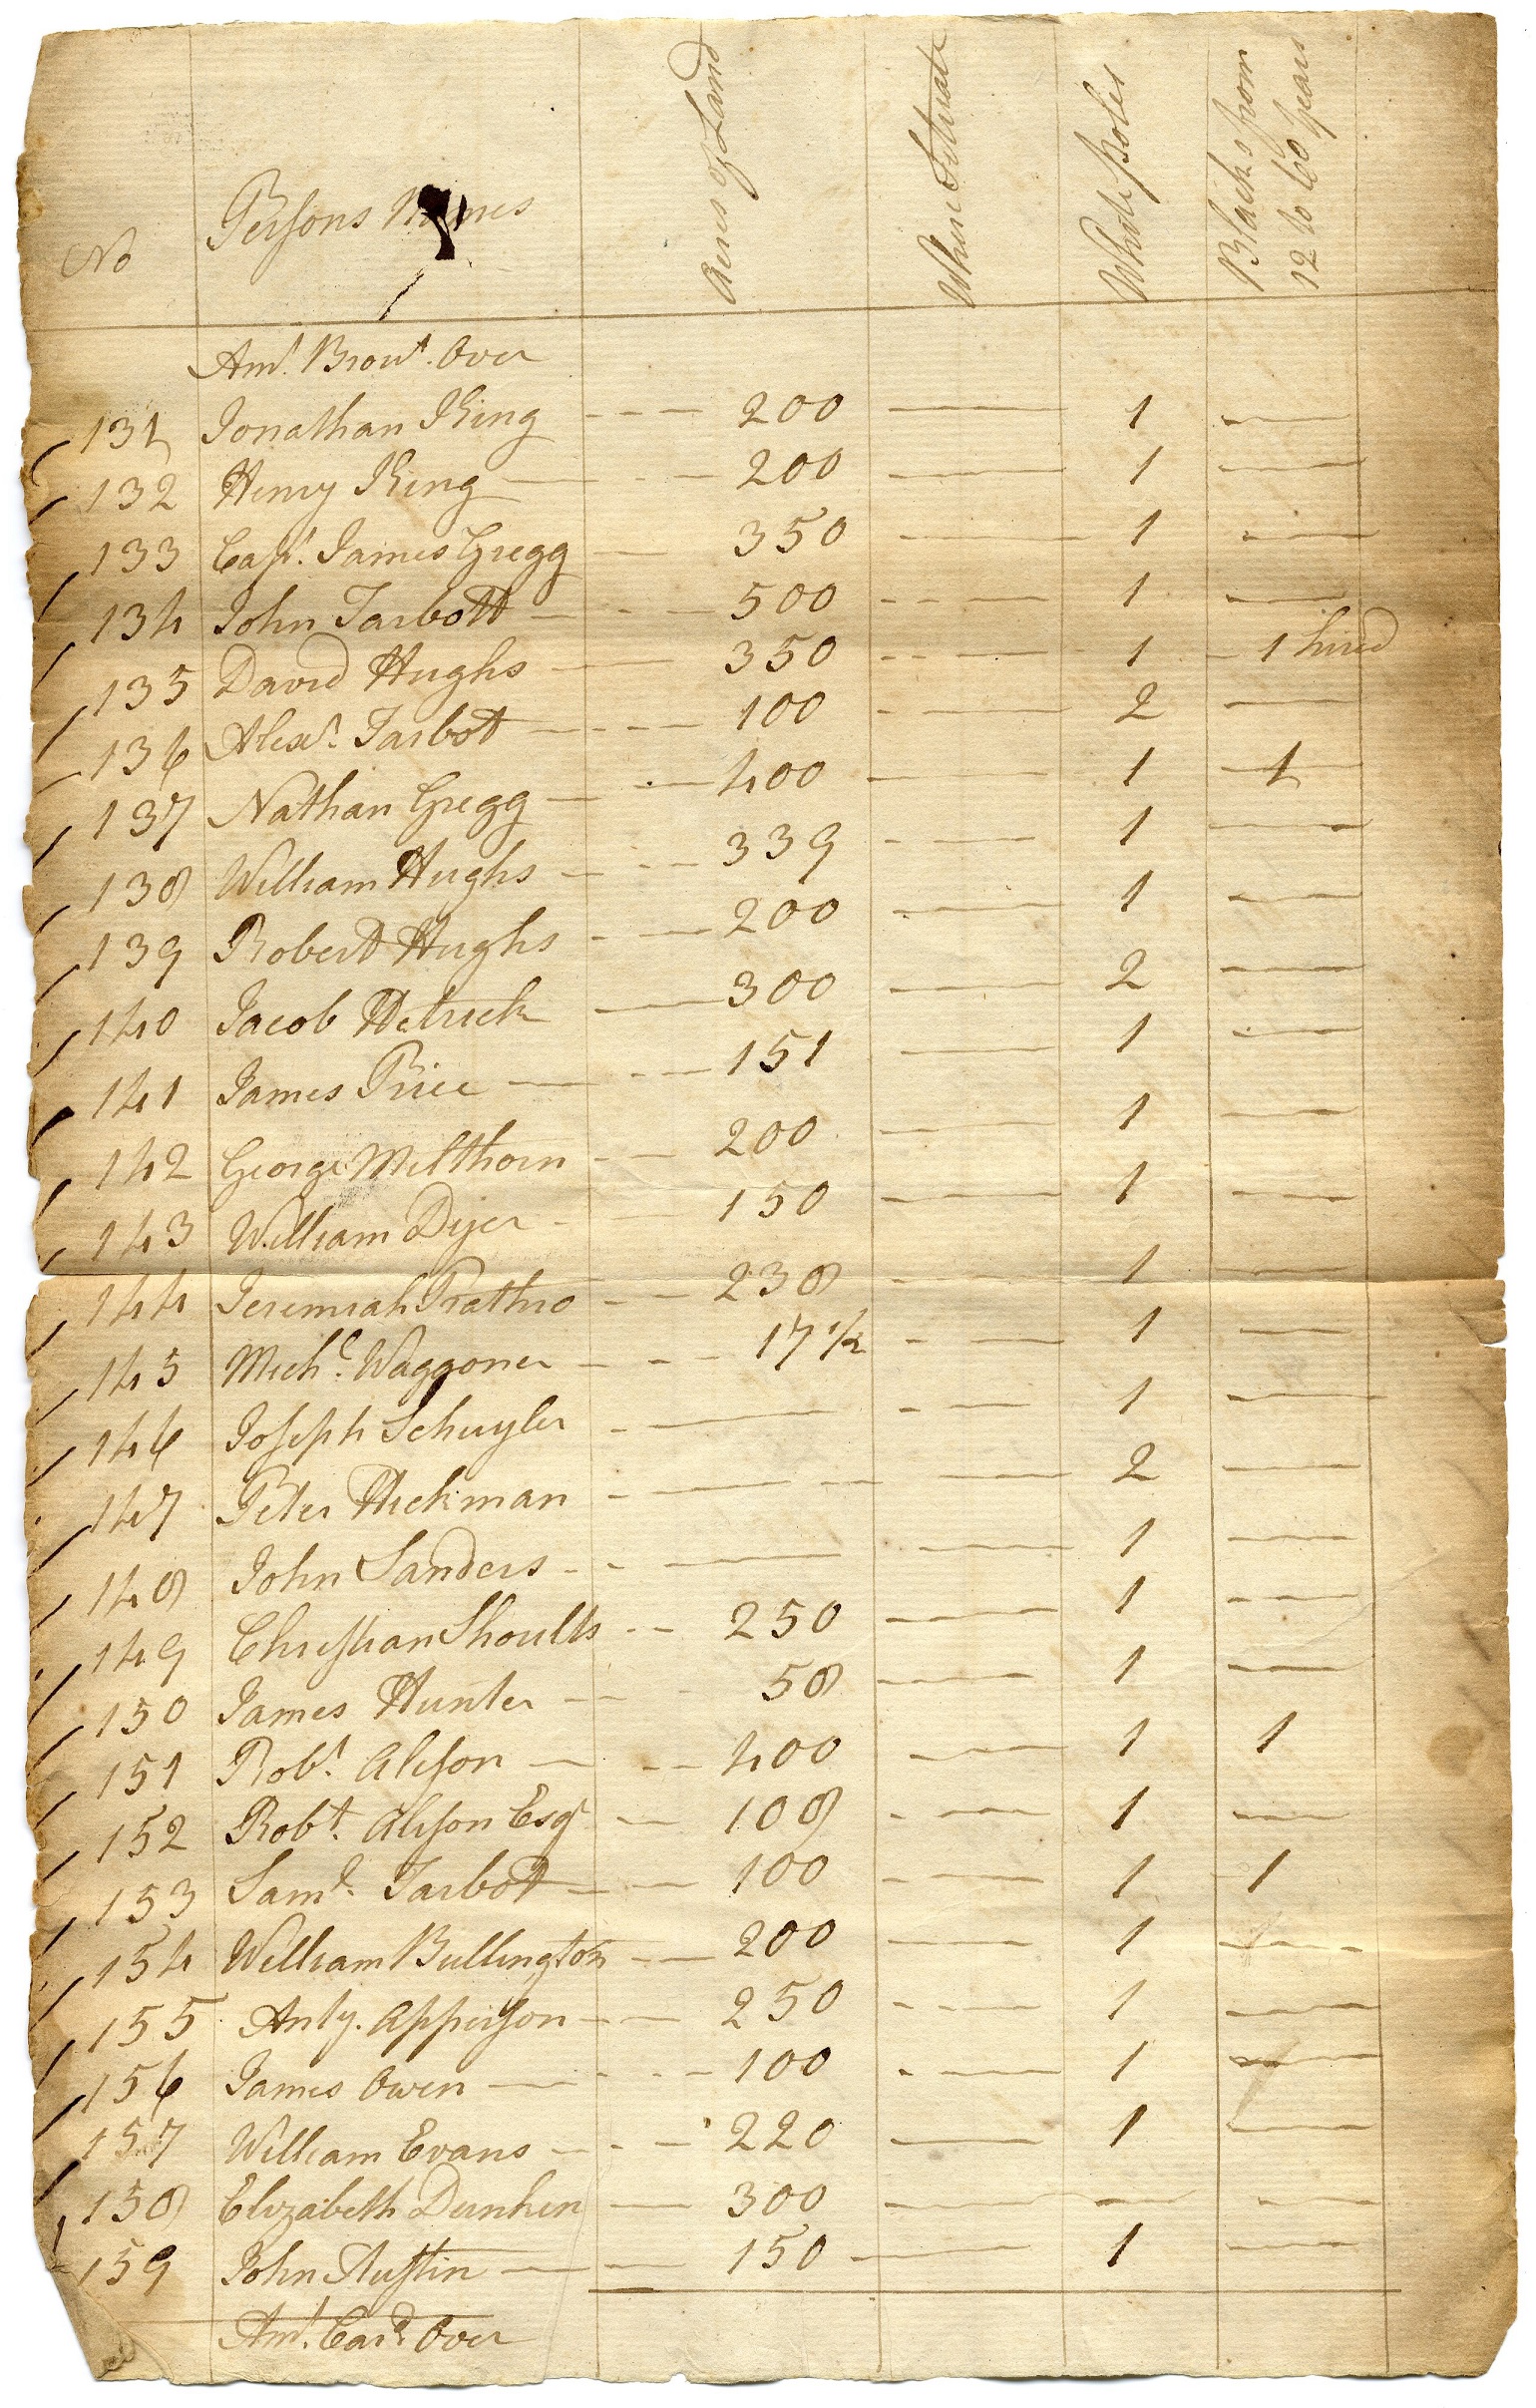 No Persons Names Acres of Land Where Situate White poles Blacks from 12 to 60 Years
Amt. Brout. Over
131 Jonathan King --- 200 — 1 —
132 Henry King — 200 — 1 —
133 Capt. James Gregg — 350 — 1 —
134 John Tarbott — 500 — 1 —
135 David Hughs — 350 — 1 1 hired
136 Alexr. Tarbot — 100 — 2 —
137 Nathan Gregg — 400 — 1 1
138 William Hughs — 339 — 1 —
139 Robert Hughs — 200 — 1 —
140 Jacob Hetrick — 300 — 2 —
141 James Price — 151 — 1 —
142 George Milthorn — 200 — 1 —
143 William Dyer — 150 — 1 —
144 Jeremiah Prathro — 238 — 1 —
145 Michl. Waggoner — 17 1/2 — 1 —
146 Joseph Schuyler — — — 1 —
147 Peter Hickman — — — 2 —
148 John Sanders — — — 1 —
149 Christian Shoults — 250 — 1 —
150 James Hunter — 58 — 1 —
151 Robt. Alison — 400 — 1 1
152 Robt. Alison Esqr — 108 — 1 —
153 Saml. Tarbot — 100 — 1 1
154 William Bullington — 200 — 1 —
155 Anty. Apperson — 250 — 1 —
156 James Owen — 100 — 1 —
157 William Evans — 220 — 1 —
158 Elizabeth Dunken — 300 — — —
159 John Austin — 150 — 1 —
Amt. Card. Over